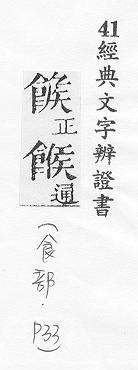 41經典文字辨證書
餱正
餱通
(食部.
P33)